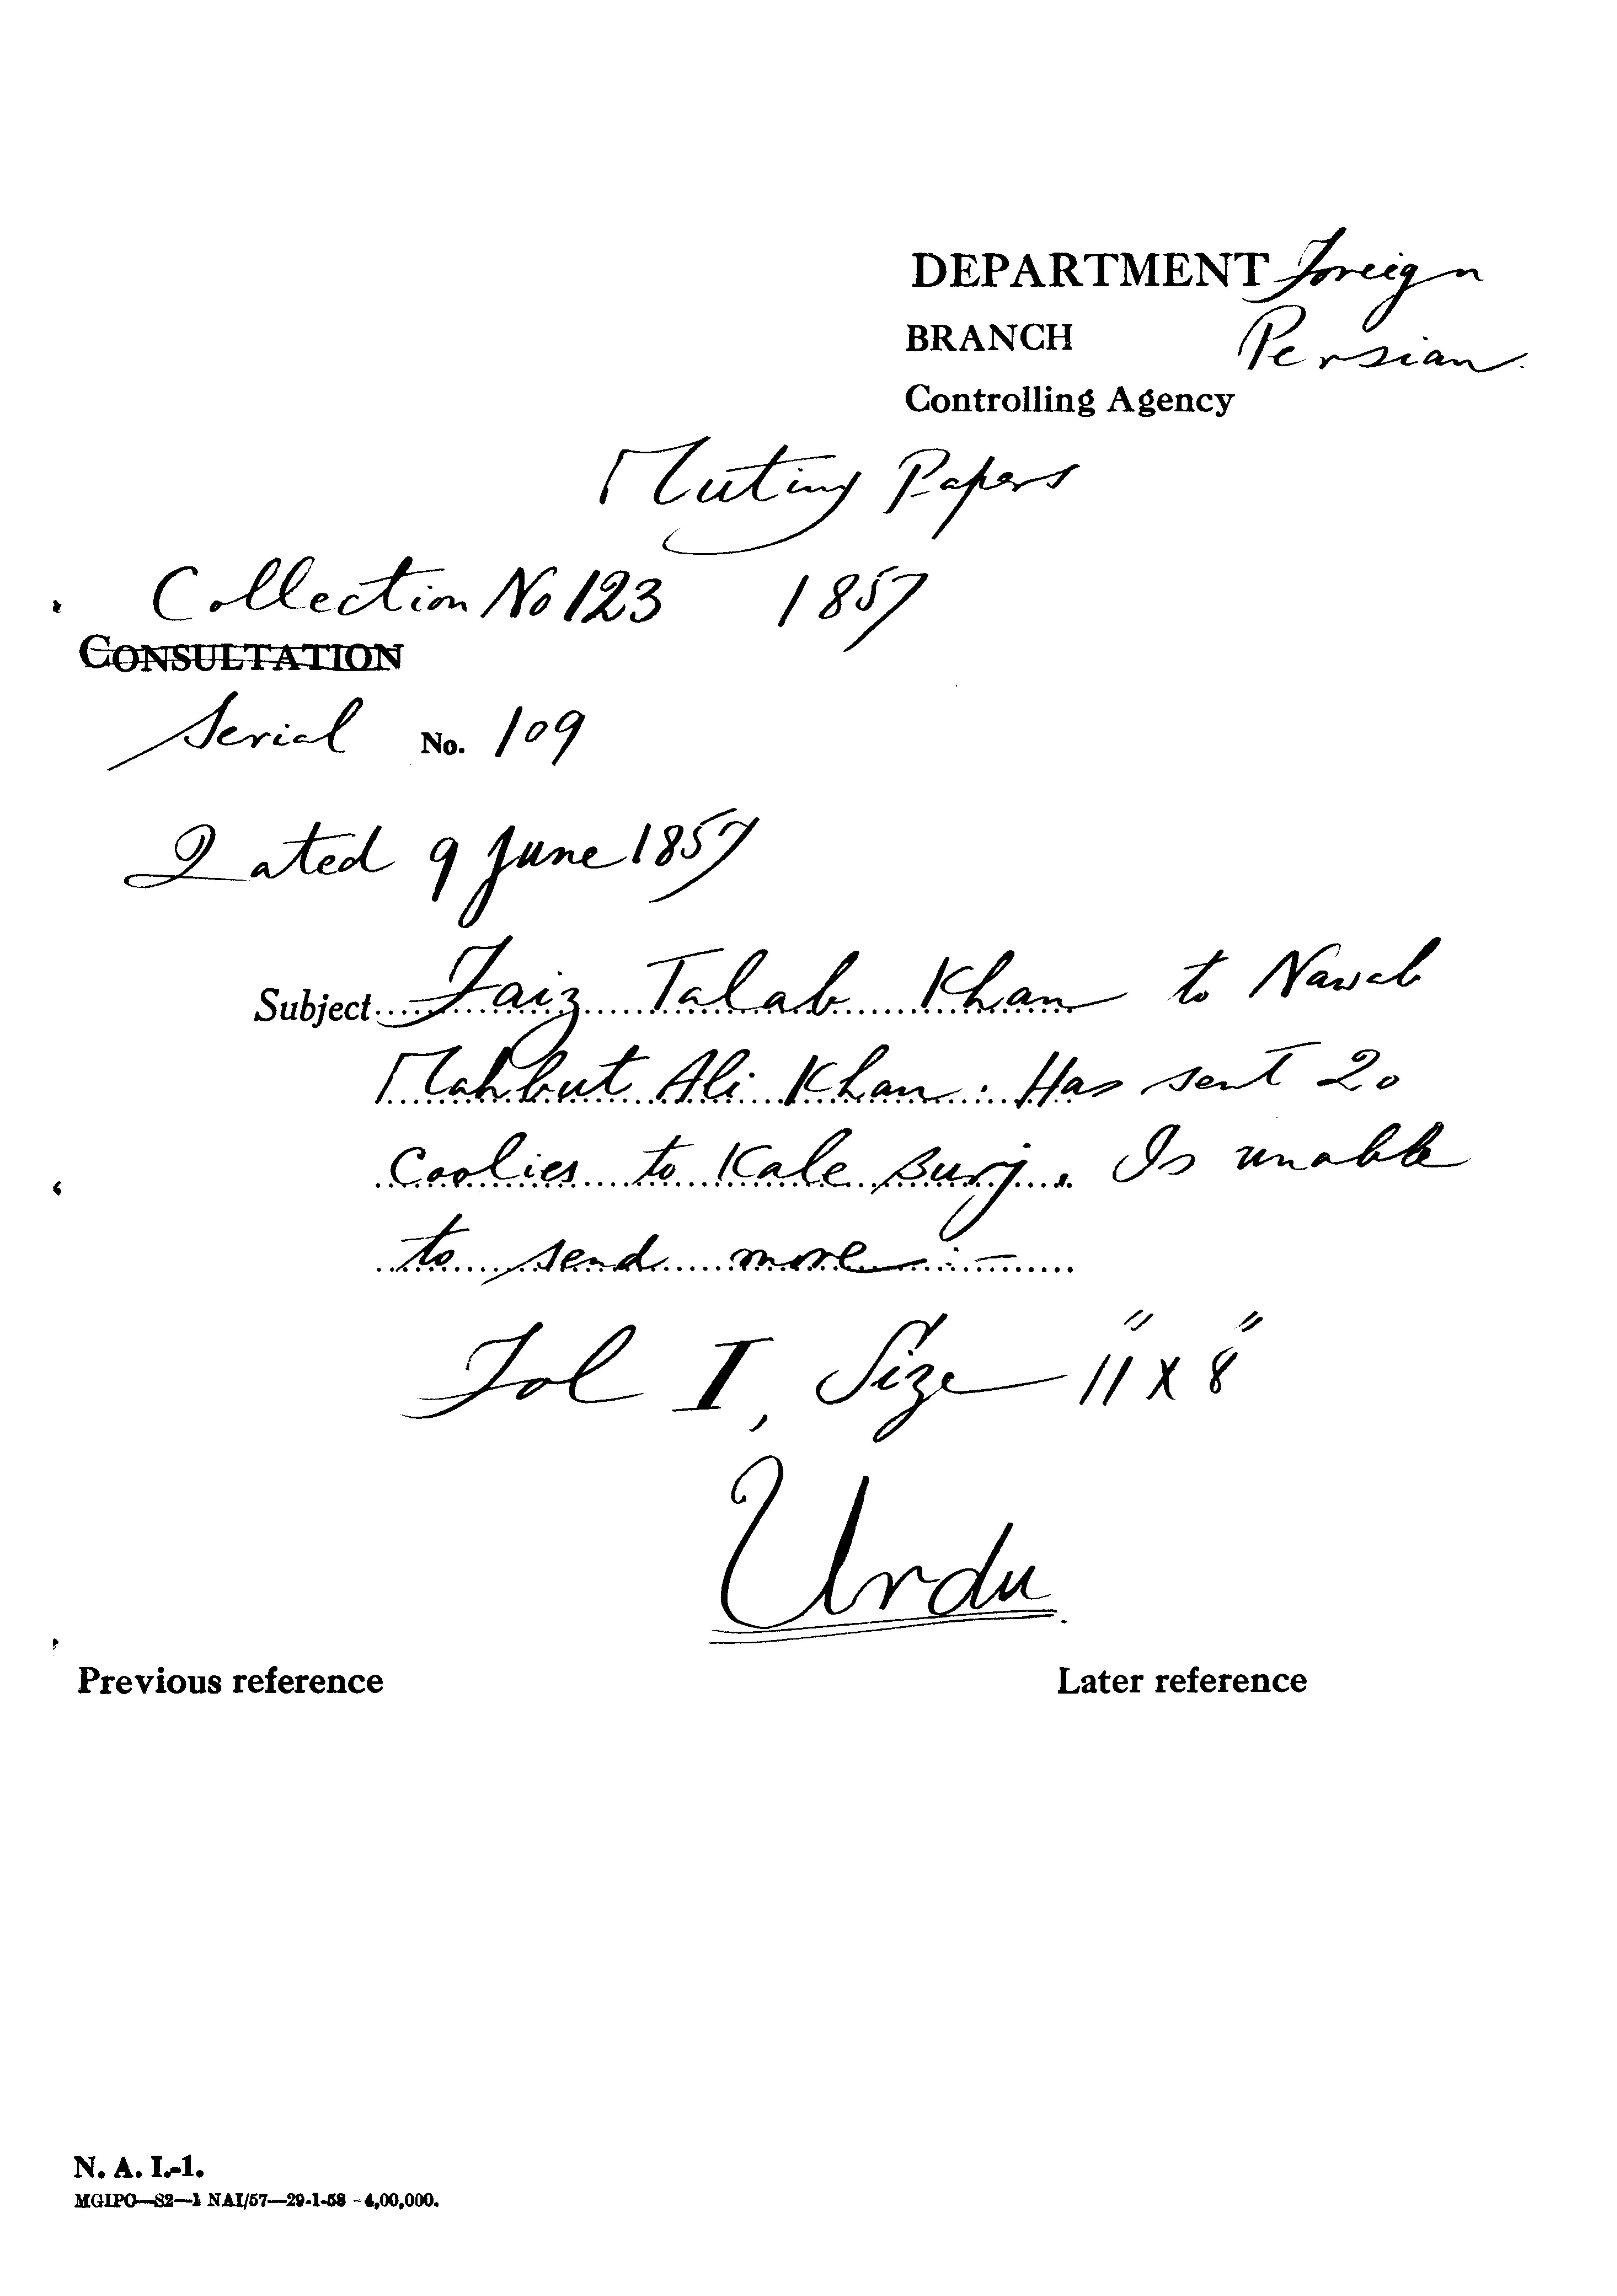 DEPARTMENT Foreign
BRANCH Persian.
Controlling Agency
Mutiny Papers
Collection No 123 1857
CONSULTATION
Serial No. 109
Dated 9 June 1857
Subject Faiz Talab Khan to Nawab
Mahbut Ali Khan. Has sent 20
Coolies to Kale Burj. Is unable
to send more :-
Fol I, Size 11" X 8"
Urdu.
Previous reference Later reference
N. A. I.-1.
MGIPC—S2—1 NAI/57—29-1-58 -4,00,000.